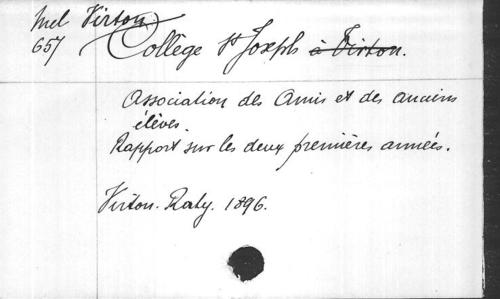 Mel Virton.
657 Collège St Joseph à Virton.
Association des Amis et des anciens
élèves.
Rapport sur les deux premières années.
Virton. Raty. 1896.